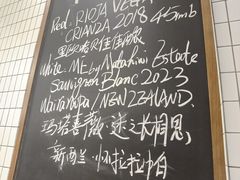 Red: RIOJA VEGA
CRIANZA 2018 45/mb
里奥哈贝佳佳酿
White: ME by Matahiwi Estate
Sauvignon Blanc 2023
Wairarapa / NEW ZEALAND.
玛塔喜薇·迷之长相思,
新西兰·怀拉拉帕